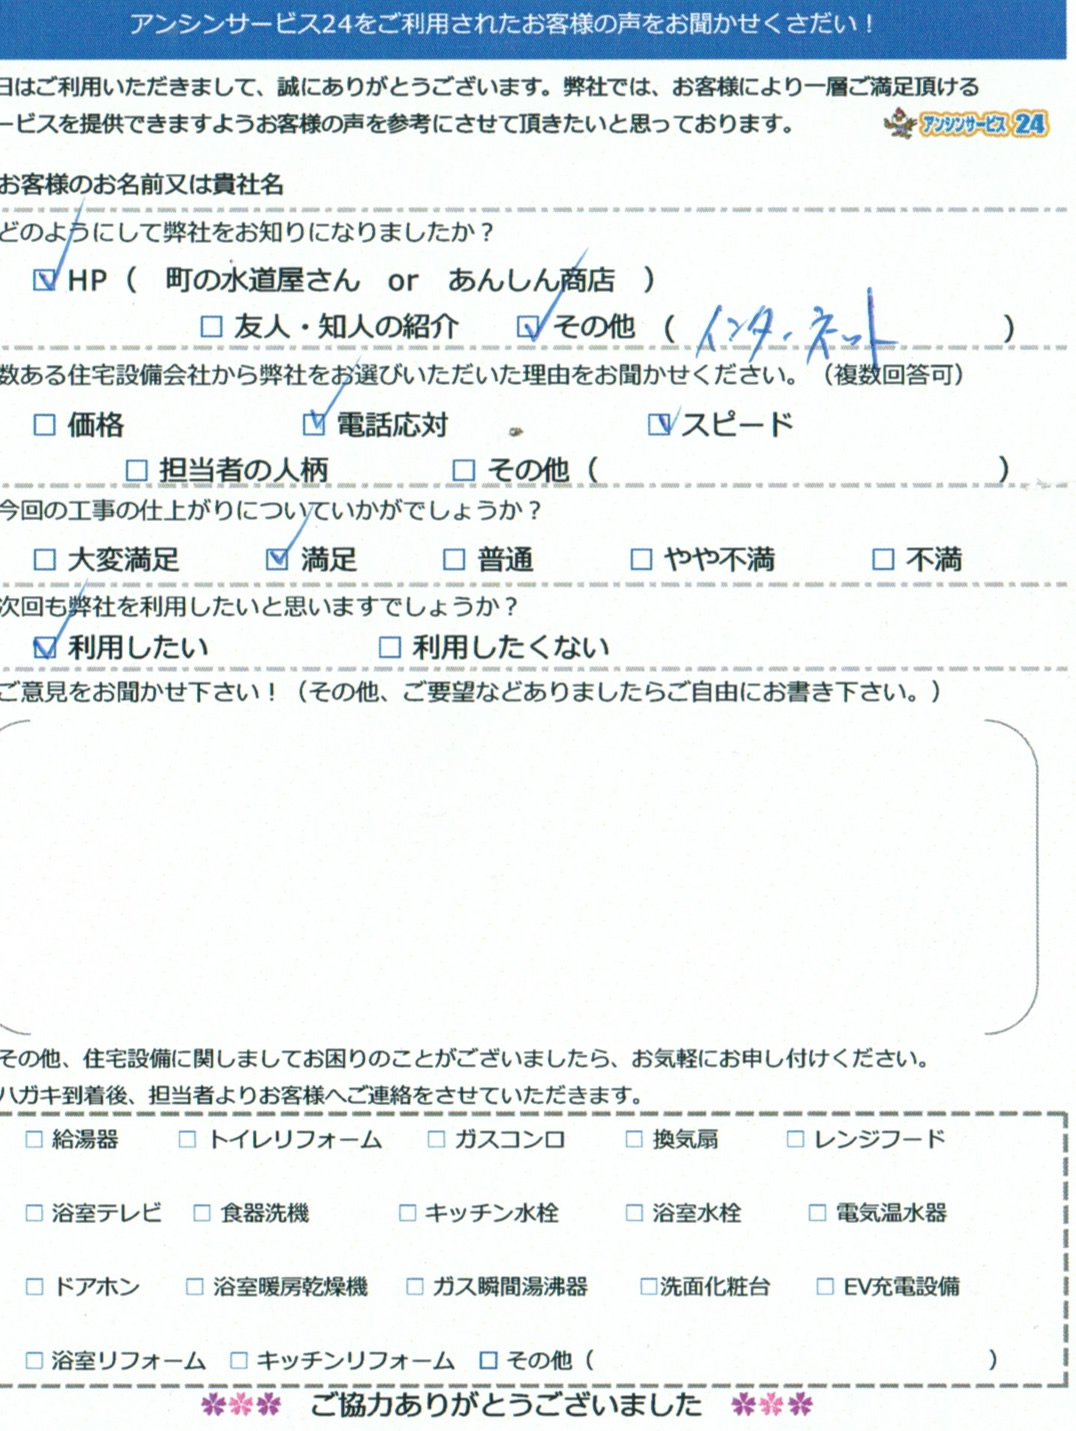 アンシンサービス24をご利用されたお客様の声をお聞かせくさだい！
日はご利用いただきまして、誠にありがとうございます。弊社では、お客様により一層ご満足頂ける
ービスを提供できますようお客様の声を参考にさせて頂きたいと思っております。
アンシンサービス24
お客様のお名前又は貴社名
どのようにして弊社をお知りになりましたか？
☑ HP（　町の水道屋さん　or　あんしん商店　）
□ 友人・知人の紹介　☑ その他 （ インターネット ）
数ある住宅設備会社から弊社をお選びいただいた理由をお聞かせください。（複数回答可）
□ 価格　☑ 電話応対　☑ スピード
□ 担当者の人柄　□ その他（　）
今回の工事の仕上がりについていかがでしょうか？
□ 大変満足　☑ 満足　□ 普通　□ やや不満　□ 不満
次回も弊社を利用したいと思いますでしょうか？
☑ 利用したい　□ 利用したくない
ご意見をお聞かせ下さい！（その他、ご要望などありましたらご自由にお書き下さい。）
その他、住宅設備に関しましてお困りのことがございましたら、お気軽にお申し付けください。
ハガキ到着後、担当者よりお客様へご連絡をさせていただきます。
□ 給湯器　□ トイレリフォーム　□ ガスコンロ　□ 換気扇　□ レンジフード
□ 浴室テレビ　□ 食器洗機　□ キッチン水栓　□ 浴室水栓　□ 電気温水器
□ ドアホン　□ 浴室暖房乾燥機　□ ガス瞬間湯沸器　□洗面化粧台　□ EV充電設備
□ 浴室リフォーム　□ キッチンリフォーム　□ その他（　）
ご協力ありがとうございました